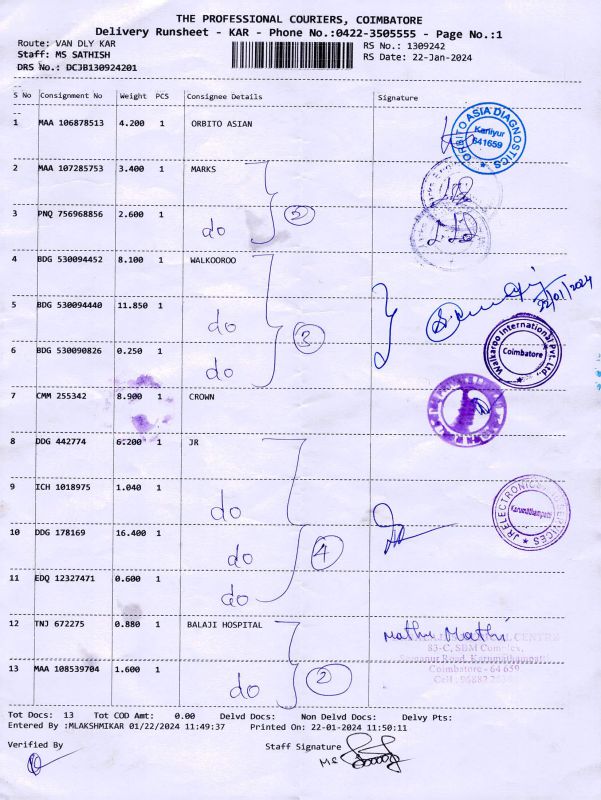 THE PROFESSIONAL COURIERS, COIMBATORE
Delivery Runsheet - KAR - Phone No.:0422-3505555 - Page No.:1
Route: VAN DLY KAR RS No.: 1309242
Staff: MS SATHISH RS Date: 22-Jan-2024
DRS No.: DCJB130924201
S No Consignment No Weight PCS Consignee Details Signature
1 MAA 106878513 4.200 1 ORBITO ASIAN
ORBITO ASIA DIAGNOSTICS
Karliyur
641659
2 MAA 107285753 3.400 1 MARKS
3 PNQ 756968856 2.600 1 do
4 BDG 530094452 8.100 1 WALKOOROO
22/01/2024
5 BDG 530094440 11.850 1 do 3
Walkaroo International Pvt. Ltd.,
Coimbatore
6 BDG 530090826 0.250 1 do
7 CMM 255342 8.900 1 CROWN
8 DDG 442774 6.200 1 JR
9 ICH 1018975 1.040 1 do
JR ELECTRONICS
Karumathampatti
10 DDG 178169 16.400 1 do 4
11 EDQ 12327471 0.600 1 do
12 TNJ 672275 0.880 1 BALAJI HOSPITAL
Mathi Mathi
83-C, SBM Complex,
Coimbatore - 641 659
13 MAA 108539704 1.600 1 do 2
Tot Docs: 13 Tot COD Amt: 0.00 Delvd Docs: Non Delvd Docs: Delvy Pts:
Entered By :MLAKSHMIKAR 01/22/2024 11:49:37 Printed On: 22-01-2024 11:50:11
Verified By Staff Signature